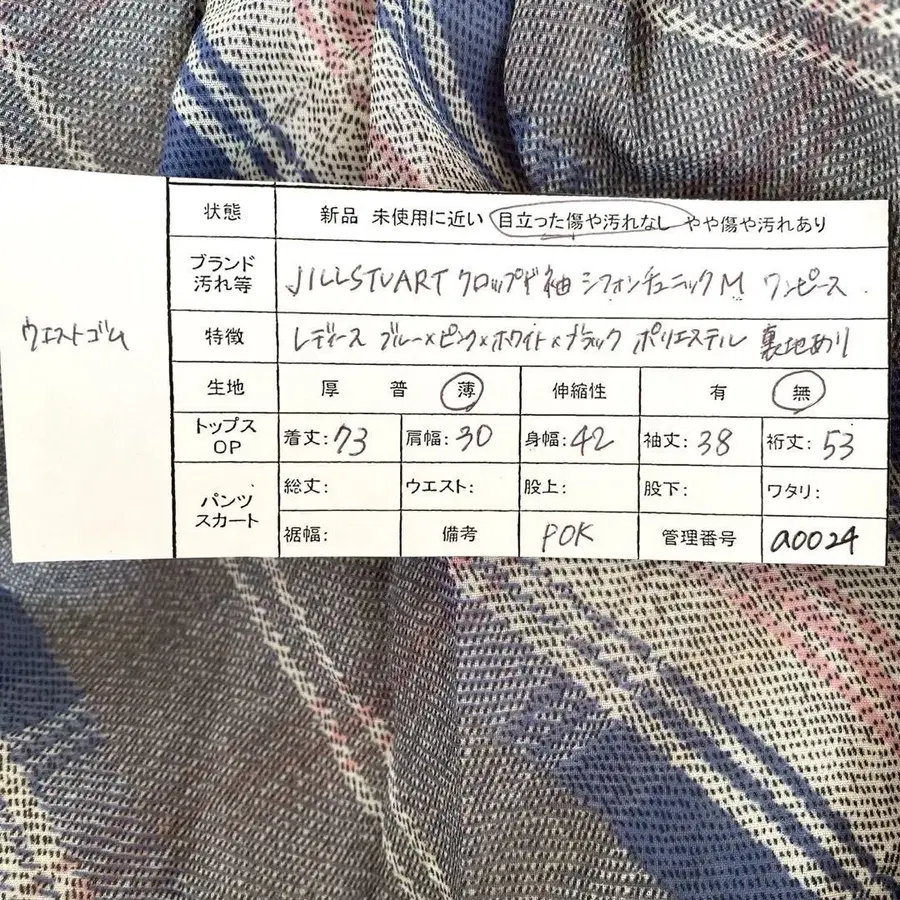 状態 新品 未使用に近い 目立った傷や汚れなし やや傷や汚れあり
ブランド
汚れ等
JILLSTUART クロップド袖 シフォンチュニック M ワンピース
ウエストゴム
特徴 レディース ブルー×ピンク×ホワイト×ブラック ポリエステル 裏地あり
生地 厚 普 薄 伸縮性 有 無
トップス
OP
着丈:73 肩幅:30 身幅:42 袖丈:38 裄丈:53
パンツ
スカート
総丈: ウエスト: 股上: 股下: ワタリ:
裾幅: 備考 POK 管理番号 a0024